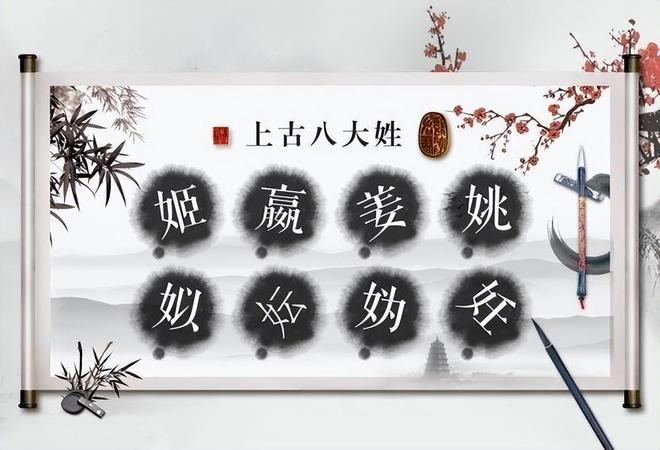 上古八大姓
姬 嬴 姜 姚
姒 妘 妫 妊